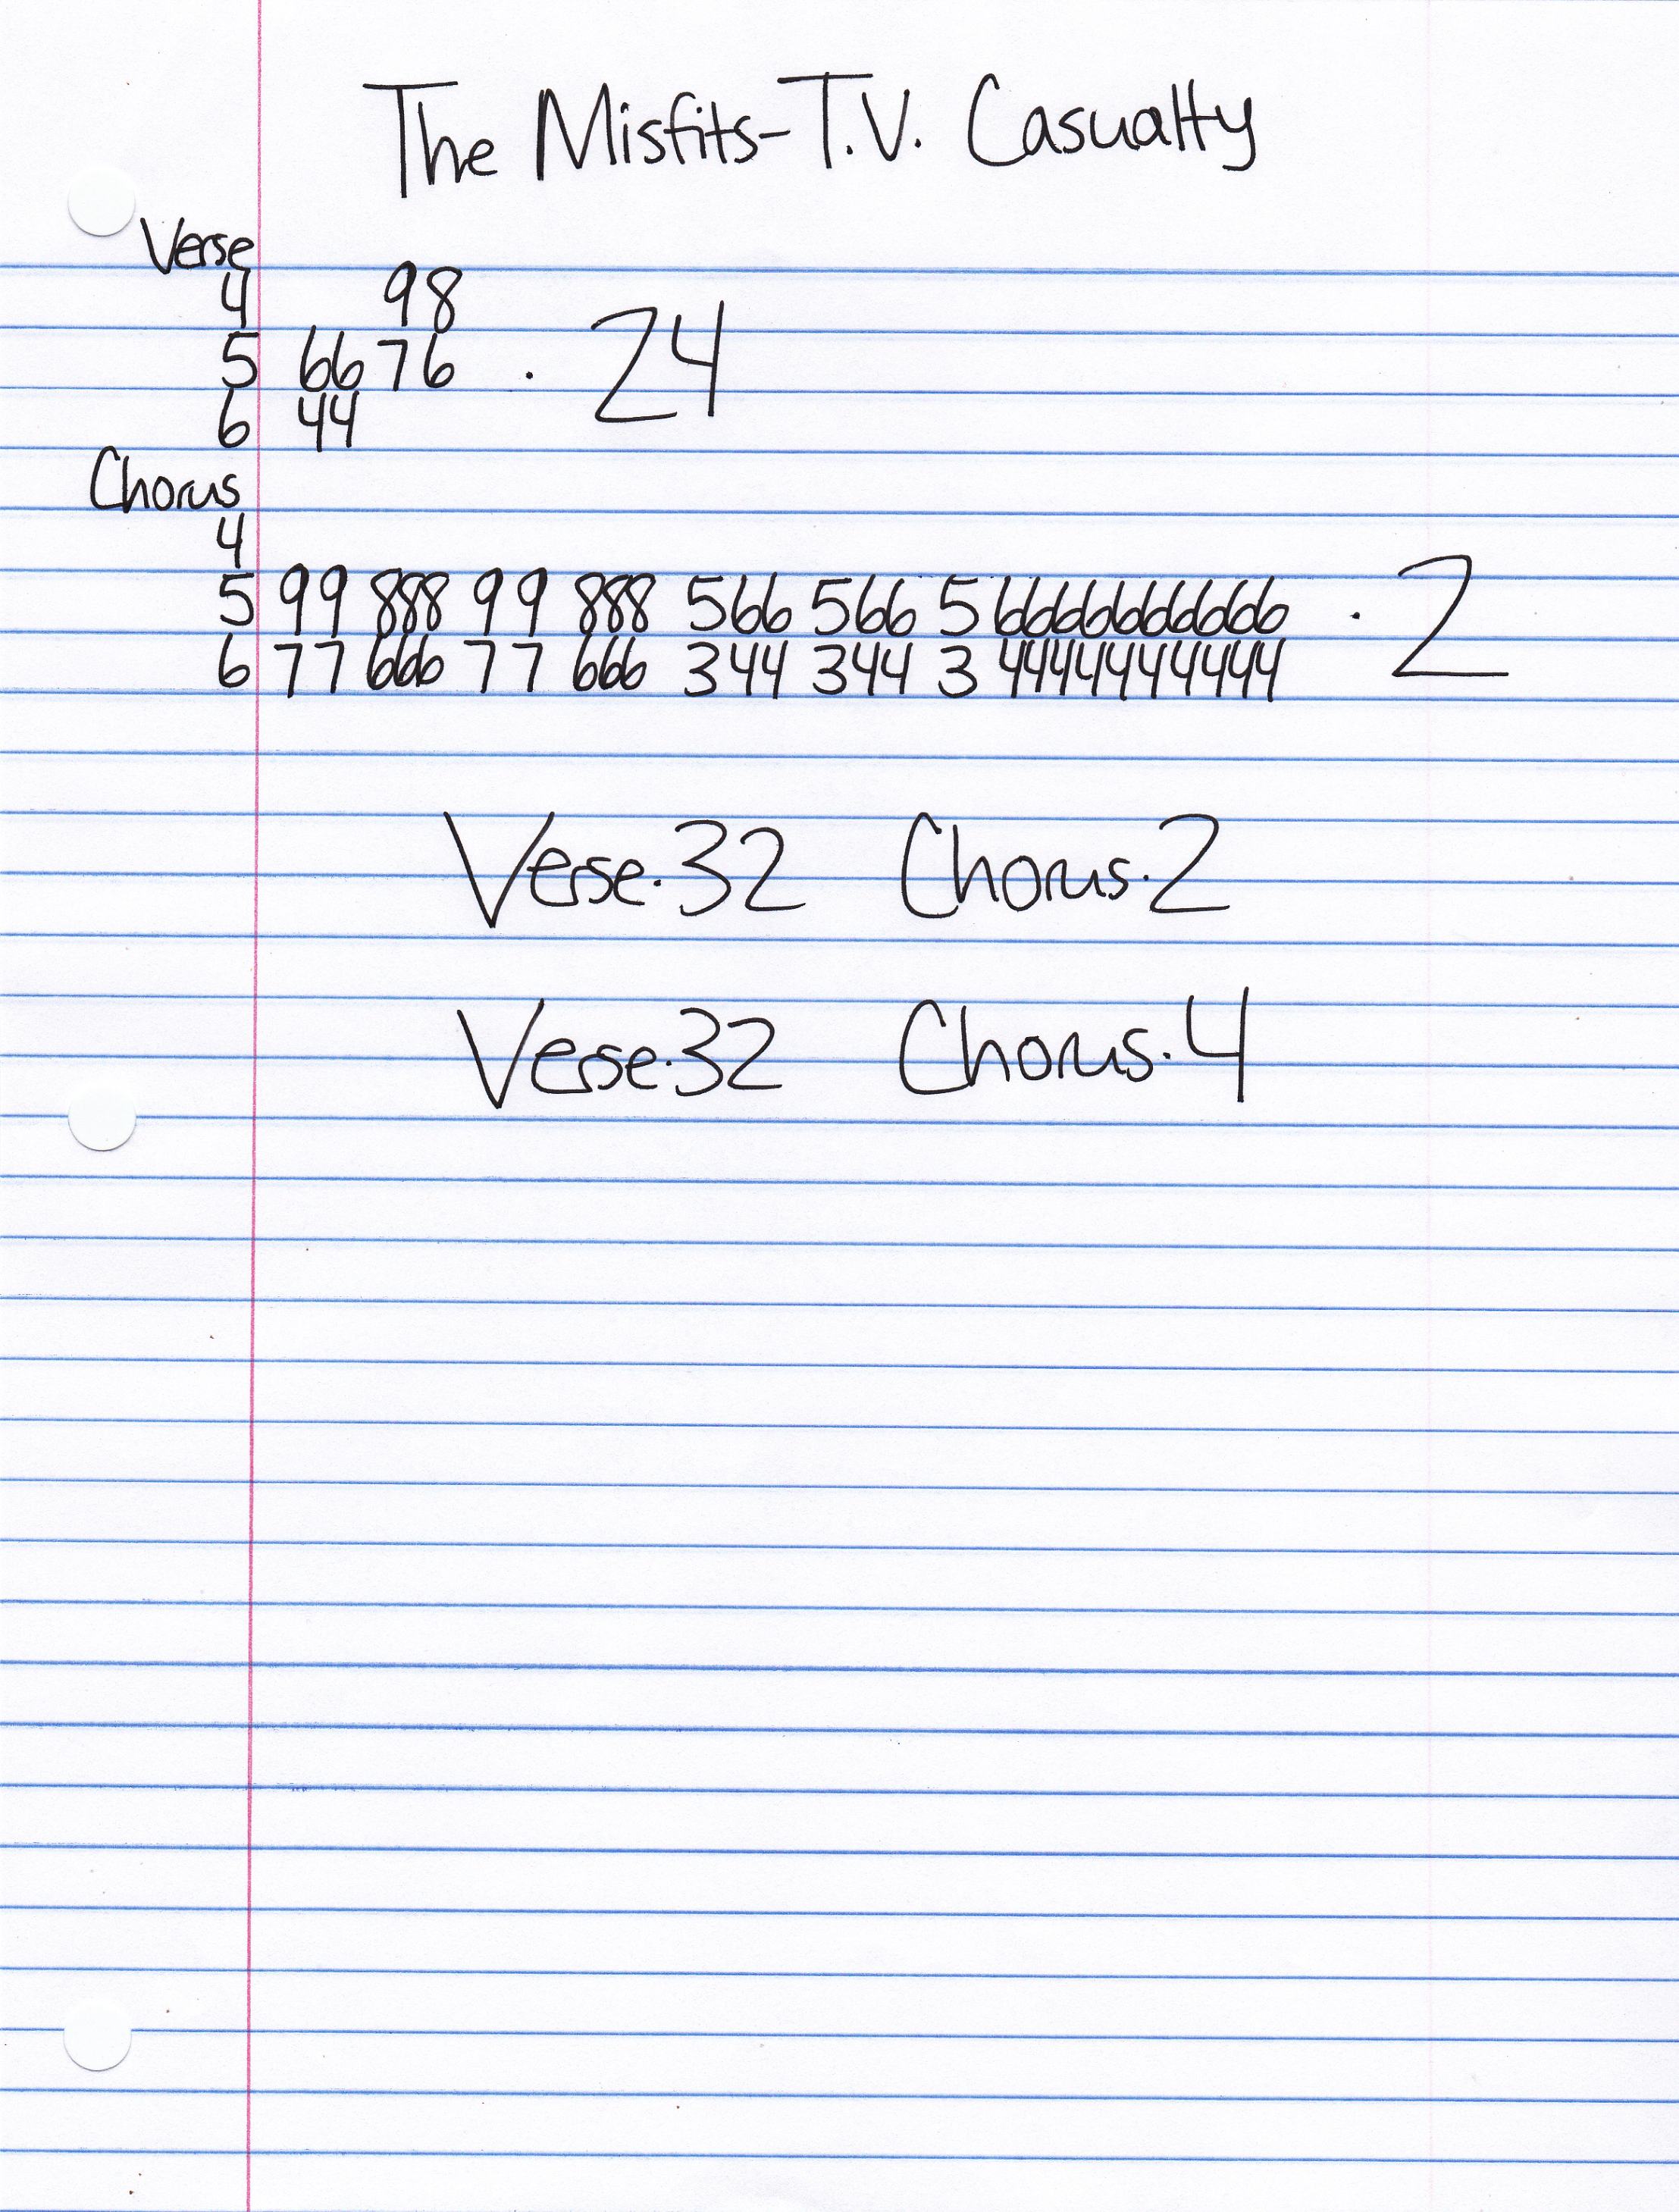 The Misfits-T.V. Casualty
Verse
4 98
5 6676 · 24
6 44
Chorus
4
5 99 888 99 888 566 566 5 66666666666 · 2
6 77 666 77 666 344 344 3 44444444444
Verse·32 Chorus·2
Verse·32 Chorus·4